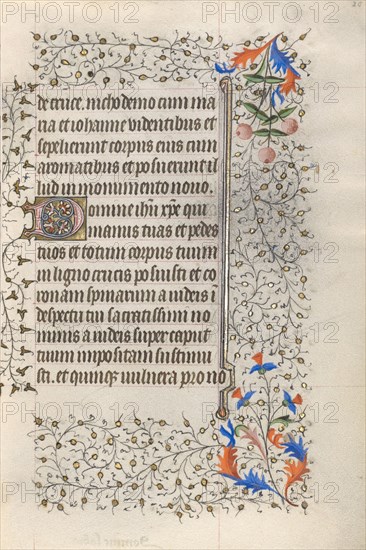 20
de cruce. nichodemo cum ma
ria et iohanne videntibus et
sepelierunt corpus eius cum
aromatibus et posuerunt il
lud in monumento nouo.
Domine ihu xpe qui
manus tuas et pedes
tuos et totum corpus tuum
in ligno crucis posuisti et co
ronam spinarum a iudeis i
despectu tui sacratissimi no
minis a iudeis super caput
tuum impositam sustinui
sti. et quinque uulnera pro no